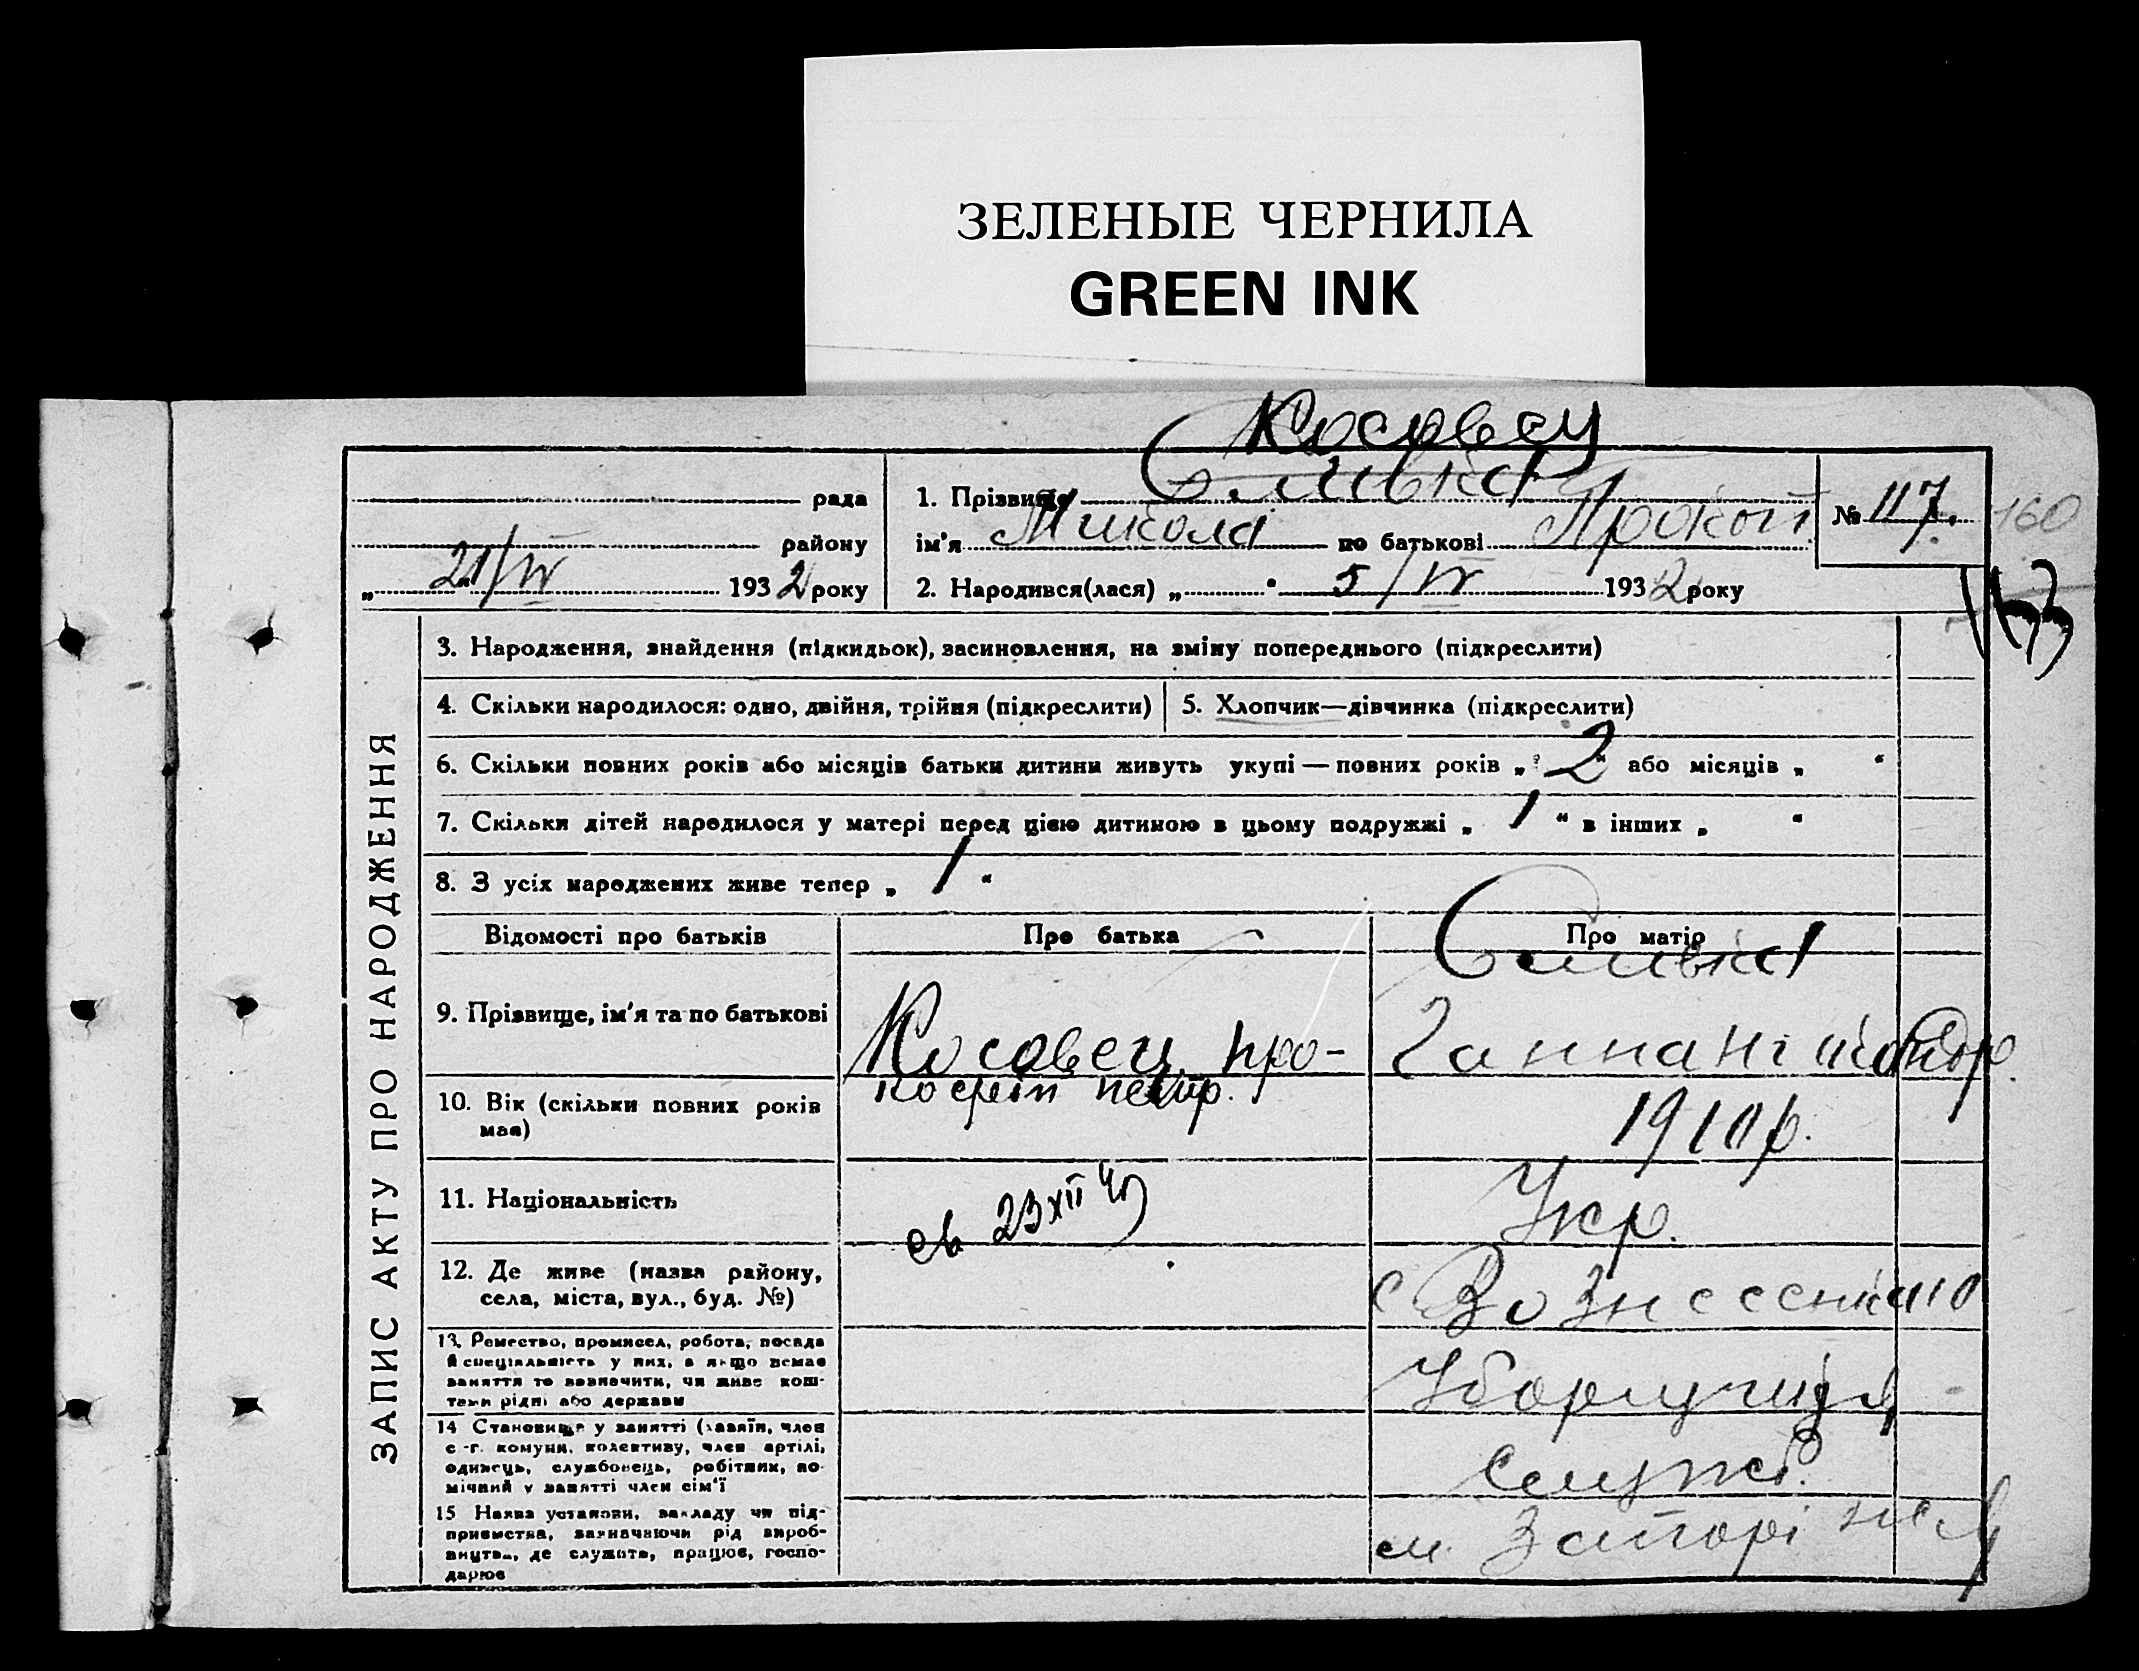 ЗЕЛЕНЫЕ ЧЕРНИЛА
GREEN INK
Косовец
рада
1. Прізвище Сливка
№ 117. 160
району
ім'я Микола по батькові Прокоп
„ 21/IV 1932 року
2. Народився(лася) „ " 5/IV 1932 року
ЗАПИС АКТУ ПРО НАРОДЖЕННЯ
3. Народження, знайдення (підкидьок), засиновлення, на зміну попереднього (підкреслити)
4. Скільки народилося: одно, двійня, трійня (підкреслити)
5. Хлопчик—дівчинка (підкреслити)
6. Скільки повних років або місяців батьки дитини живуть укупі — повних років „ 2 “ або місяців „ “
7. Скільки дітей народилося у матері перед цією дитиною в цьому подружжі „ 1 “ в інших „ “
8. З усіх народжених живе тепер „ 1 “
Відомості про батьків
Про батька
Про матір
Сливка
9. Прізвище, ім'я та по батькові
Косовец Про-
кофий Петр.
Ганна
10. Вік (скільки повних років має)
1910 р.
11. Національність
св 23 XII
Укр.
12. Де живе (назва району,
села, міста, вул., буд. №)
с Вознесенка
13. Ремество, промисел, робота, посада
й спеціяльність у них, а якщо немає
заняття то зазначити, чи живе кош-
тами рідні або держави
Уборщиця
14 Становище у занятті (хазяїн, член
с.-г. комуни, колективу, член артілі,
одинець, службовець, робітник, по-
мічний у занятті член сім'ї
служб.
15 Назва установи, закладу чи під-
приємства, зазначаючи рід вироб-
ництва, де служить, працює, госпо-
дарює
м. Запоріжжя